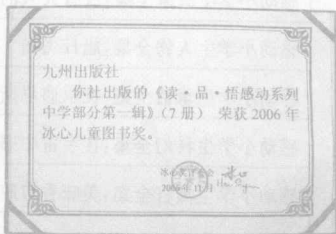 九州出版社
你社出版的《读·品·悟感动系列
中学部分第一辑》（7册） 荣获2006年
冰心儿童图书奖。
2006年11月